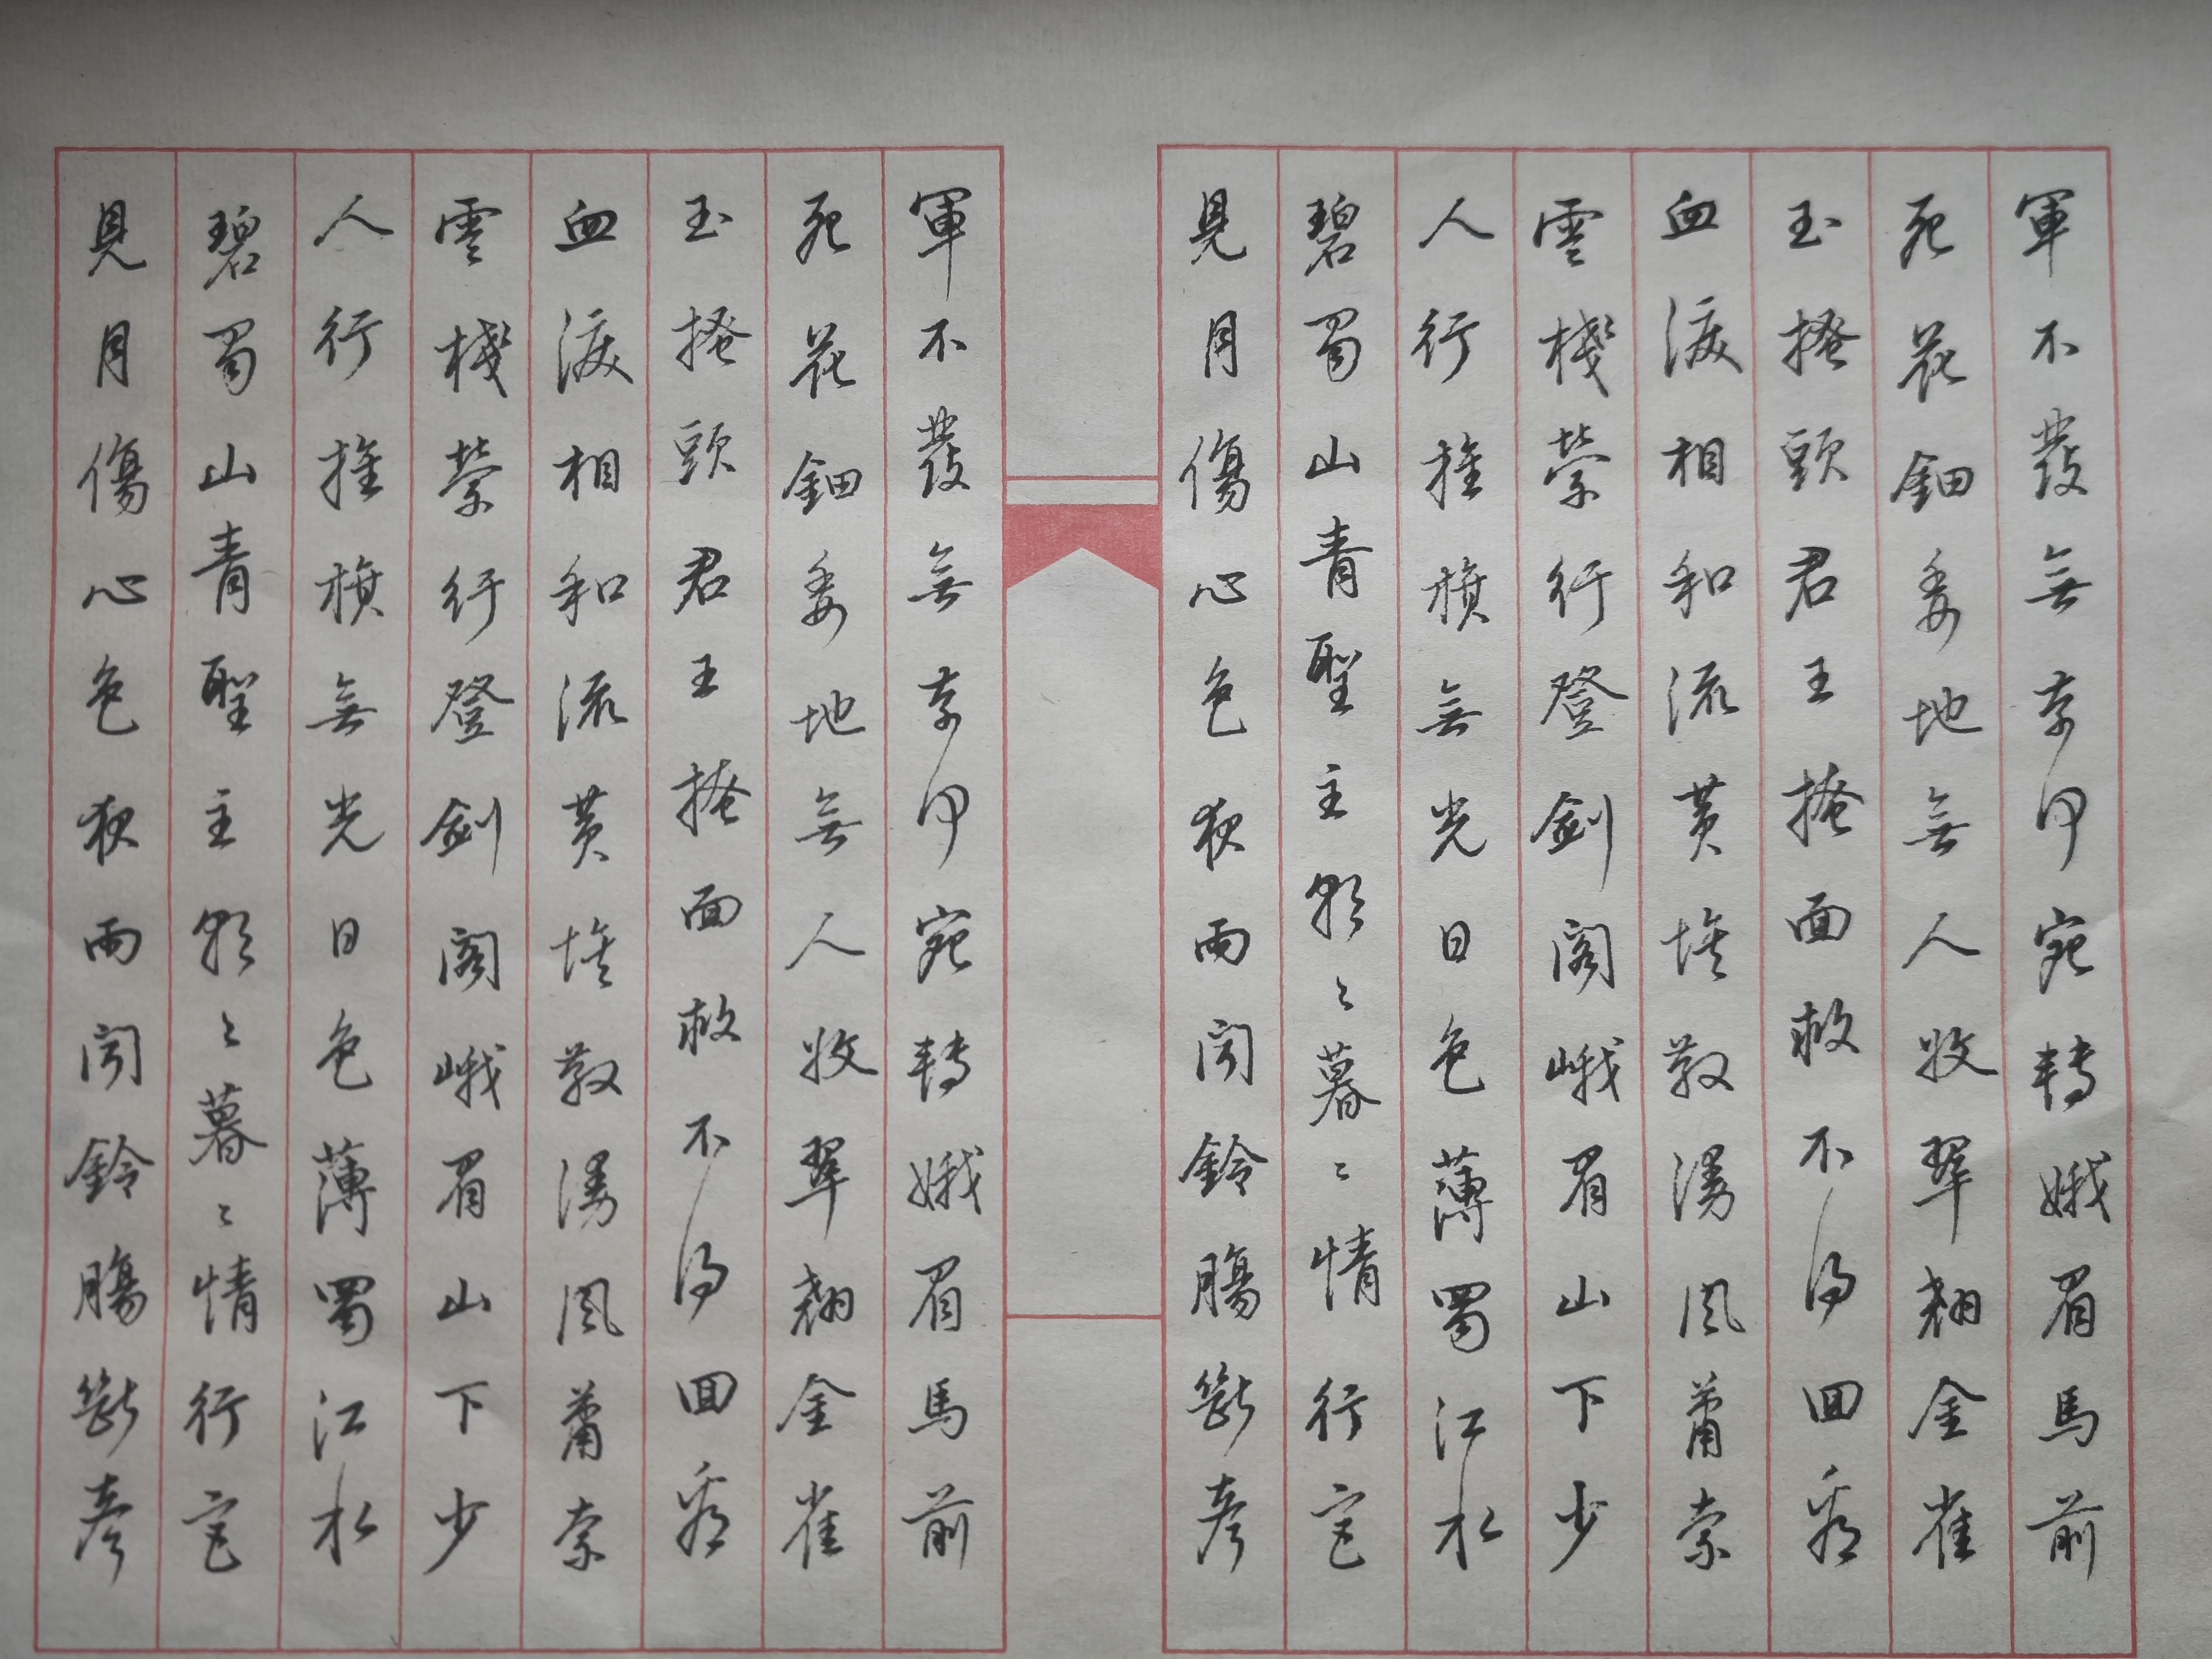 軍不發無奈何宛轉娥眉馬前
死花鈿委地無人收翠翹金雀
玉搔頭君王掩面救不得回看
血淚相和流黄埃散漫風蕭索
雲棧縈紆登劍閣峨眉山下少
人行旌旗無光日色薄蜀江水
碧蜀山青聖主朝〻暮〻情行宫
見月傷心色夜雨聞鈴腸斷聲
軍不發無奈何宛轉娥眉馬前
死花鈿委地無人收翠翹金雀
玉搔頭君王掩面救不得回看
血淚相和流黄埃散漫風蕭索
雲棧縈紆登劍閣峨眉山下少
人行旌旗無光日色薄蜀江水
碧蜀山青聖主朝〻暮〻情行宫
見月傷心色夜雨聞鈴腸斷聲